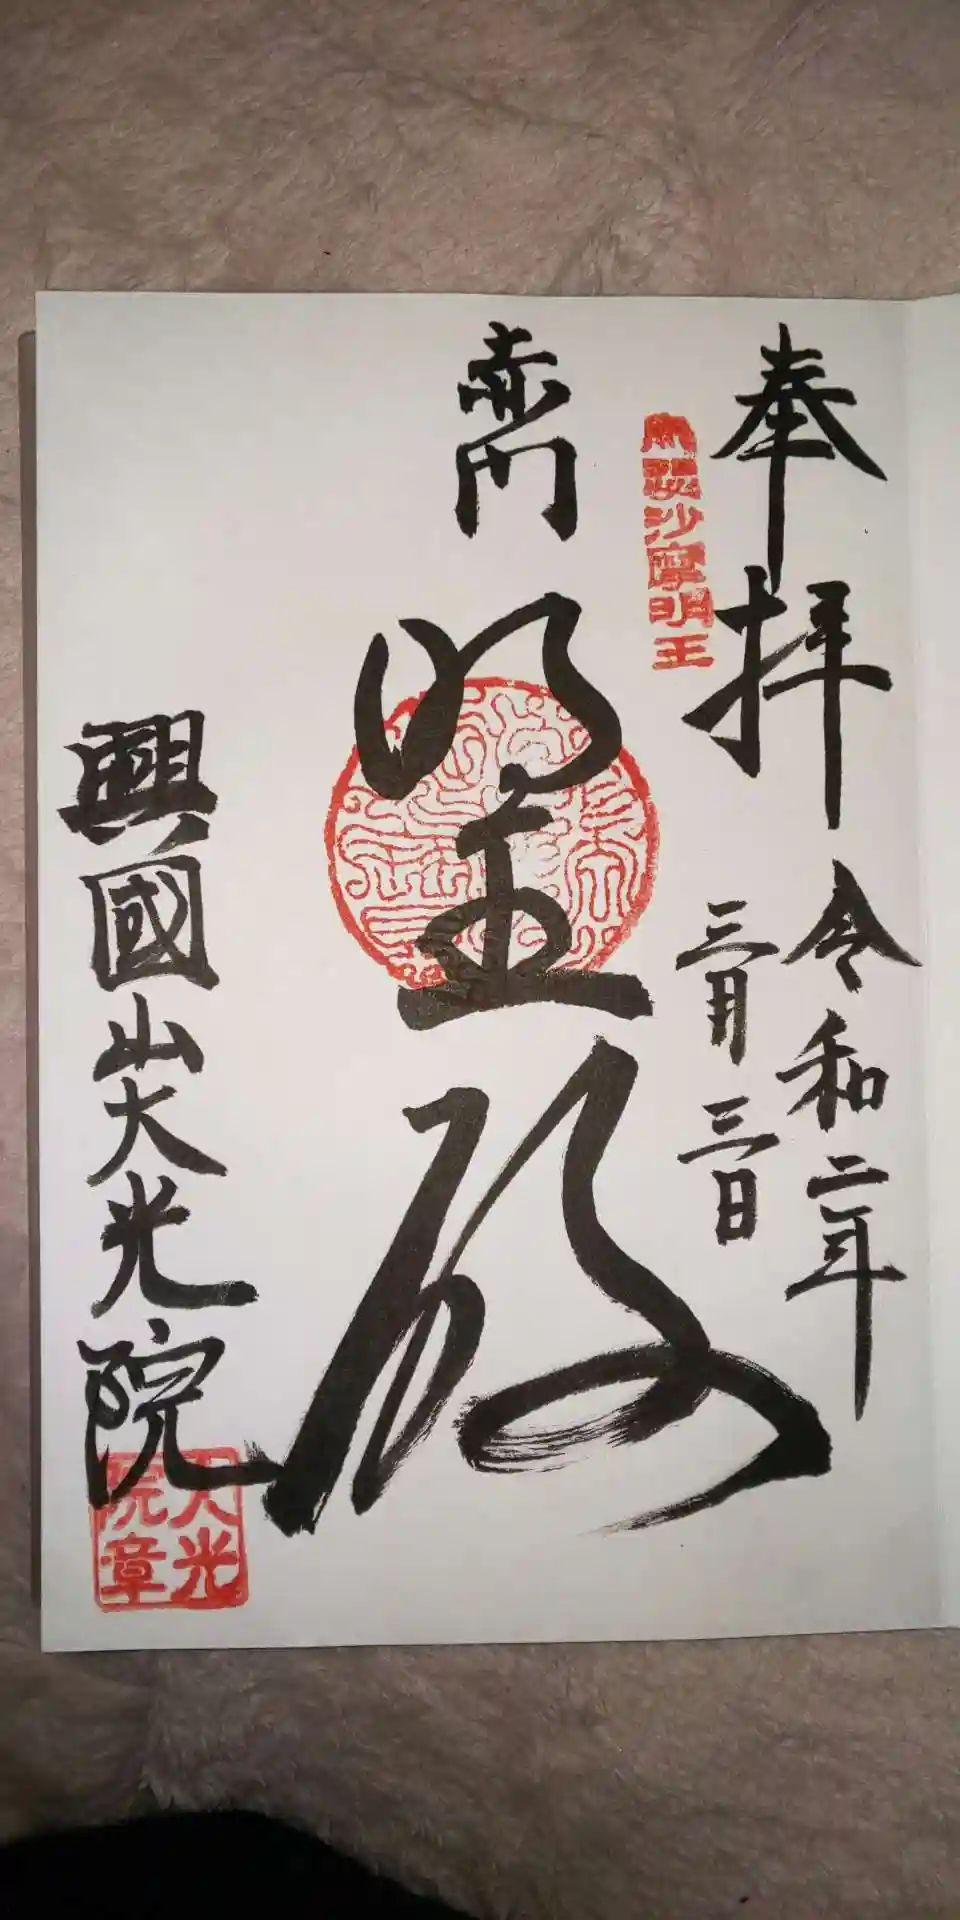 奉拝
令和二年
三月三日
沙摩明王
赤門
明王殿
興國山大光院
大光
院章